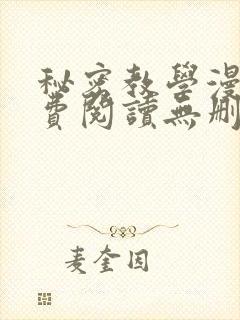 秘密教學漫
費閱讀無刪
麦奎因